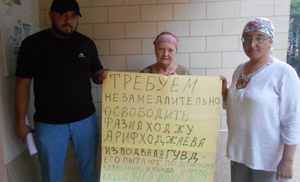 ТРЕБУЕМ
НЕЗАМЕДЛИТЕЛЬНО
ОСВОБОДИТЬ
ФАЗИЛХОДЖУ
АРИФХОДЖАЕВА
ИЗ ПОДВАЛА ГУВД-
ЕГО ПЫТАЮТ ПО